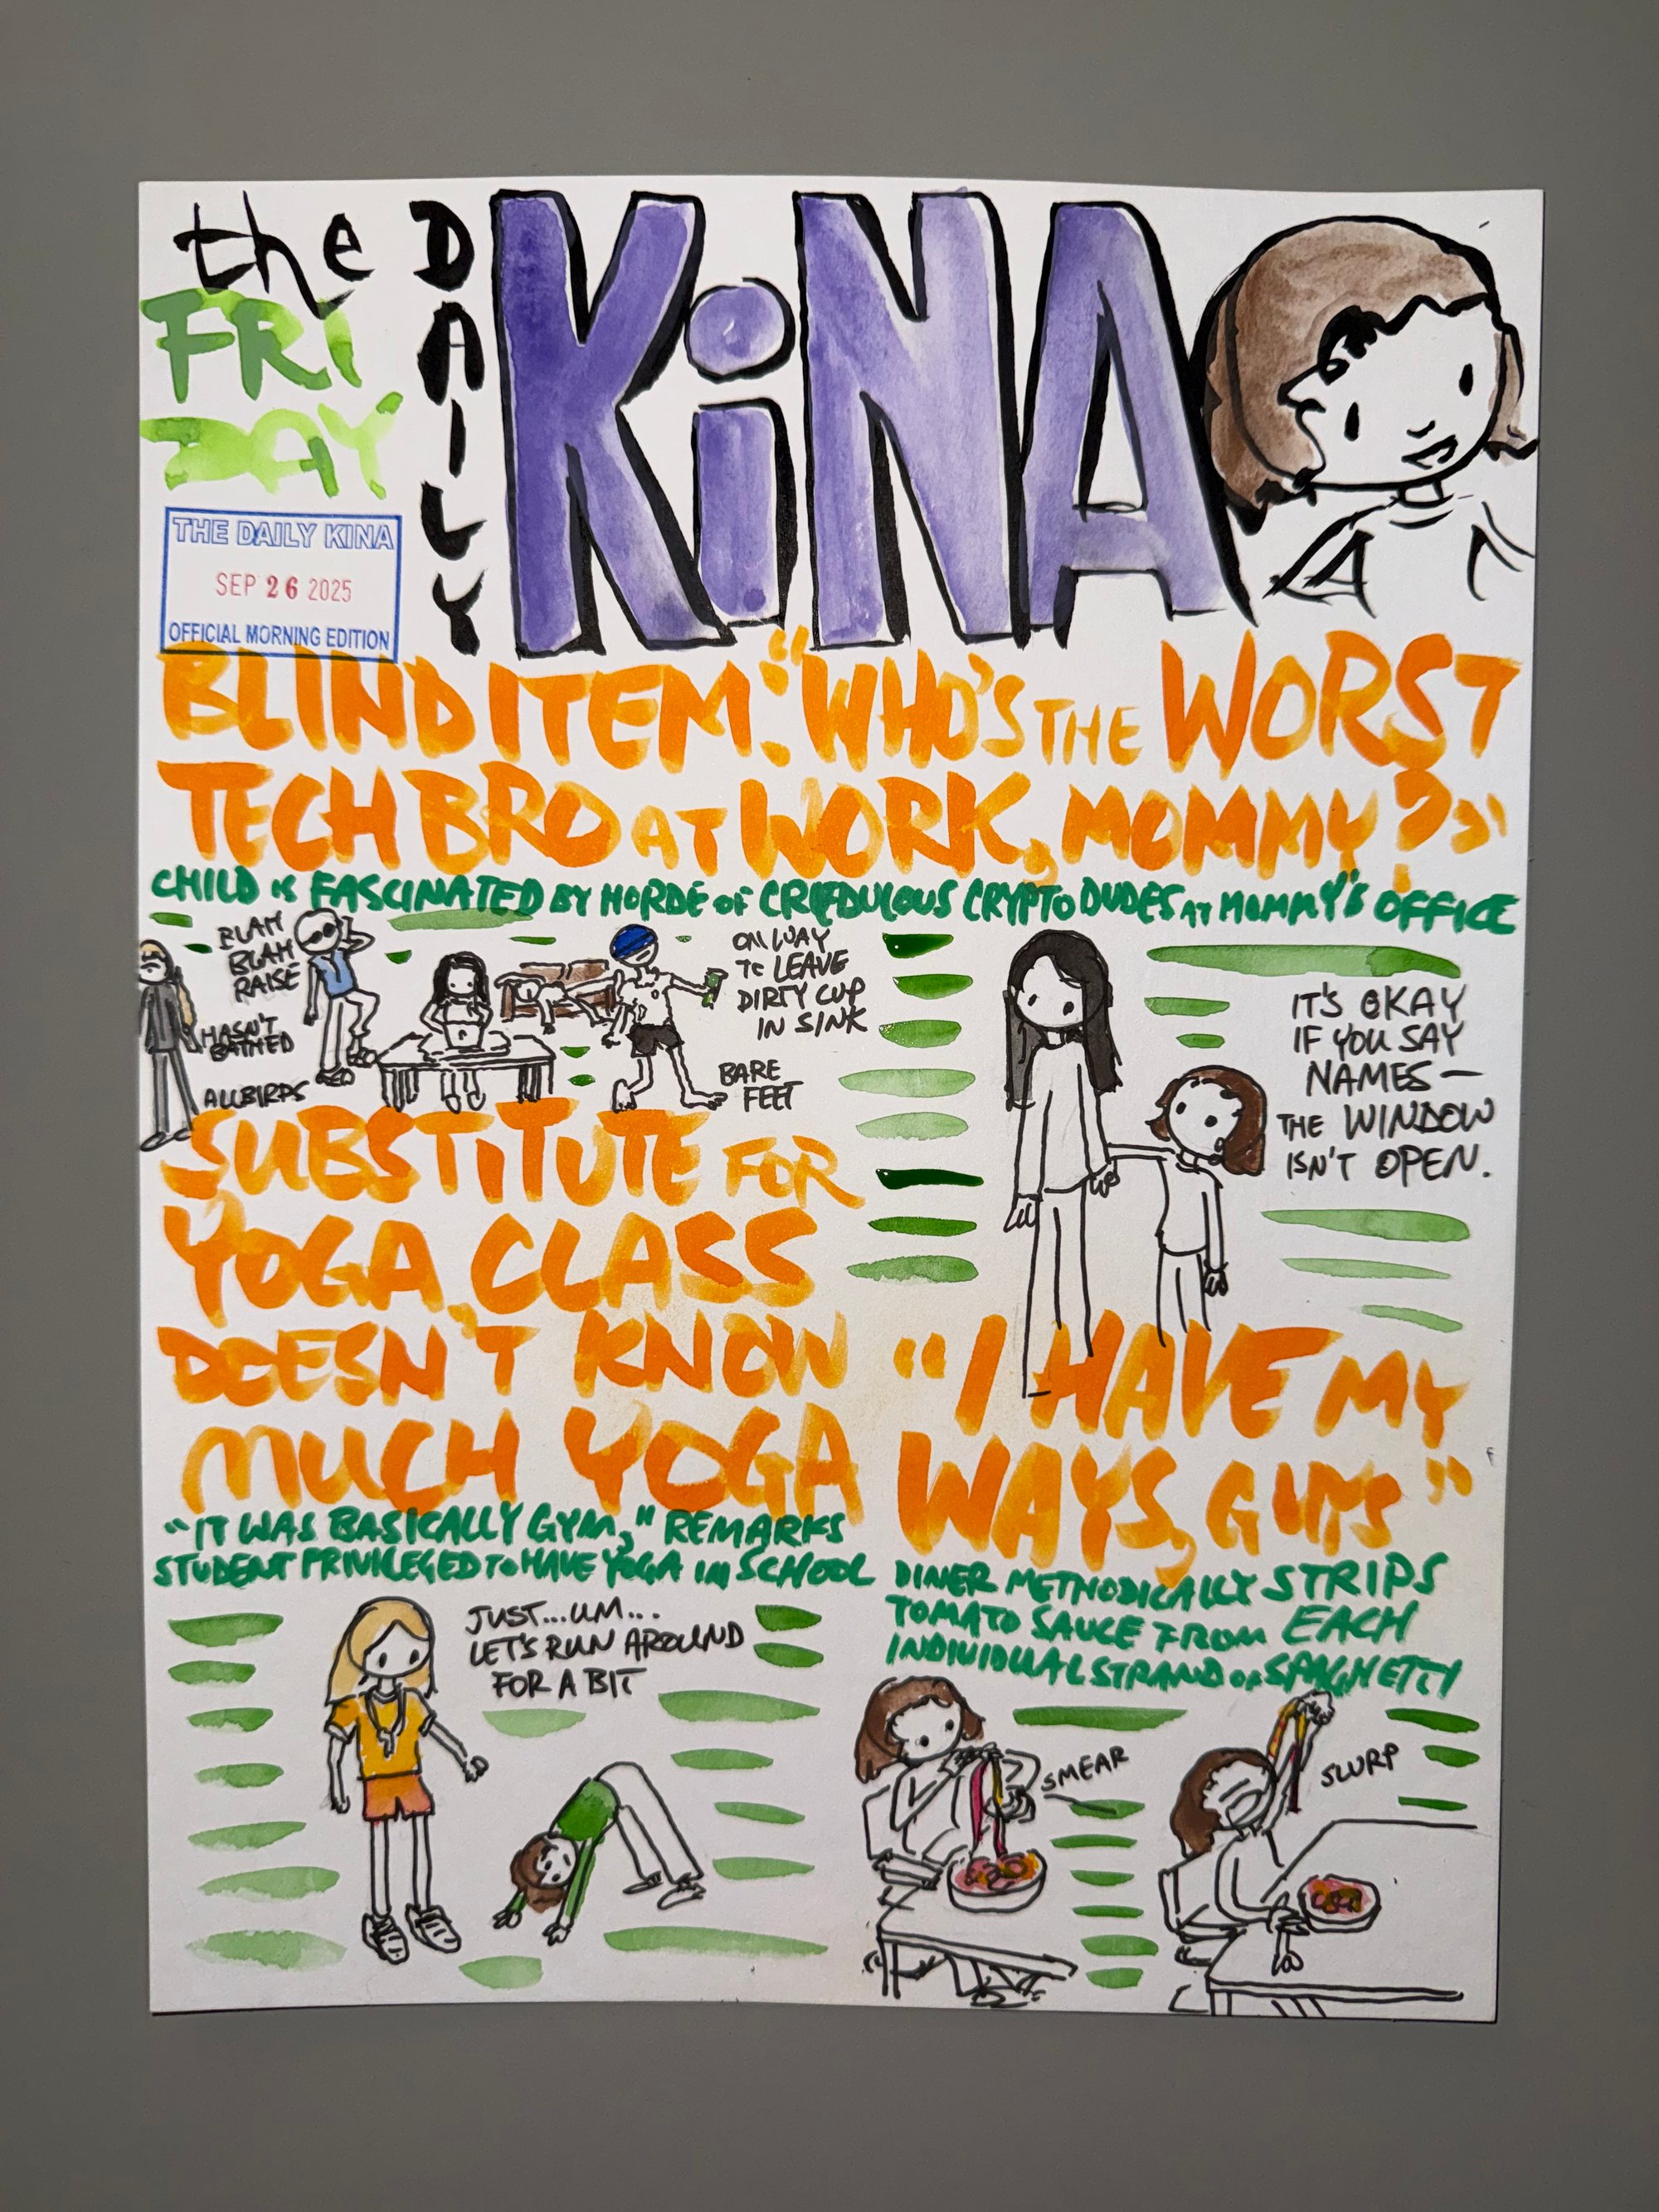 the
FRI
DAY
DAILY
KiNA
THE DAILY KINA
SEP 26 2025
OFFICIAL MORNING EDITION
BLIND ITEM: "WHO'S THE WORST
TECH BRO AT WORK, MOMMY?"
CHILD IS FASCINATED BY HORDE OF CREDULOUS CRYPTO DUDES AT MOMMY'S OFFICE
BLAH
BLAH
RAISE
HASN'T
BATHED
ALLBIRDS
ON WAY
TO LEAVE
DIRTY CUP
IN SINK
BARE
FEET
IT'S OKAY
IF YOU SAY
NAMES—
THE WINDOW
ISN'T OPEN.
SUBSTITUTE FOR
YOGA CLASS
DOESN'T KNOW
MUCH YOGA
"IT WAS BASICALLY GYM," REMARKS
STUDENT PRIVILEGED TO HAVE YOGA IN SCHOOL
JUST...UM...
LET'S RUN AROUND
FOR A BIT
"I HAVE MY
WAYS, GUYS"
DINER METHODICALLY STRIPS
TOMATO SAUCE FROM EACH
INDIVIDUAL STRAND OF SPAGHETTI
SMEAR
SLURP